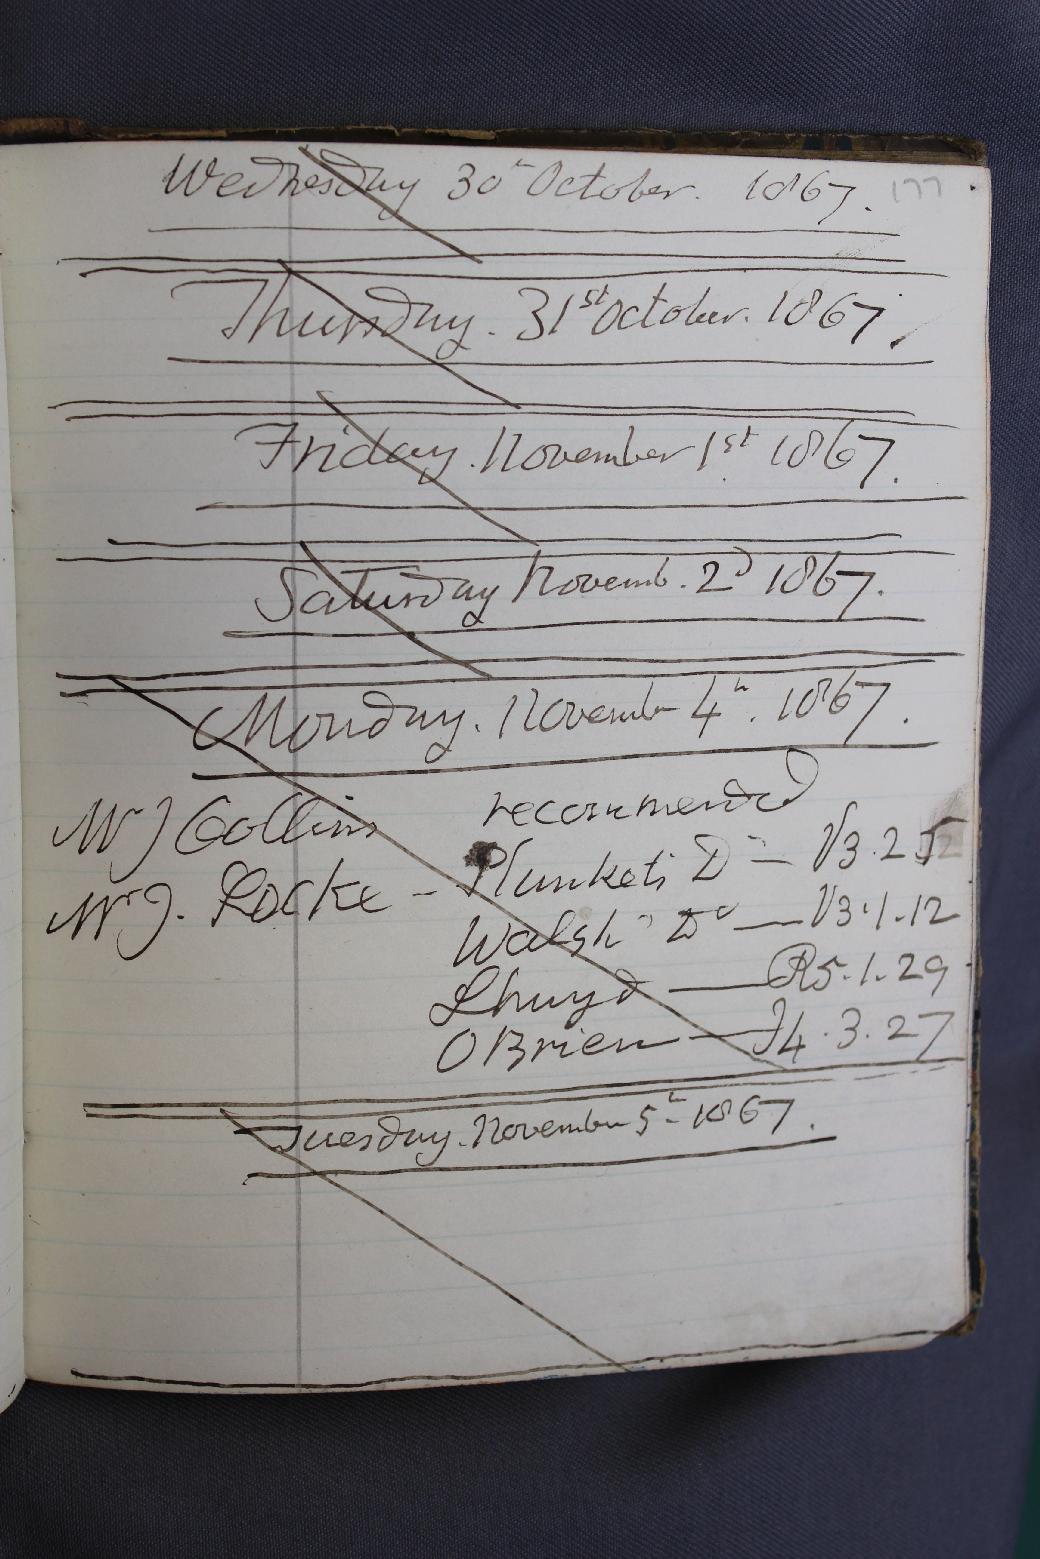 Wednesday 30th October. 1867. 177
Thursday. 31st October. 1867.
Friday. November 1st 1867.
Saturday Novemb. 2d 1867.
Monday. November 4th. 1867.
recommended
Mr J Collins
Mr J. Locke - Plunkets Dy — V3.2.52
Walsh " Dy — V3.1.12
Lhuyd — R5.1.29
O Brien — J4.3.27
Tuesday. November 5th 1867.